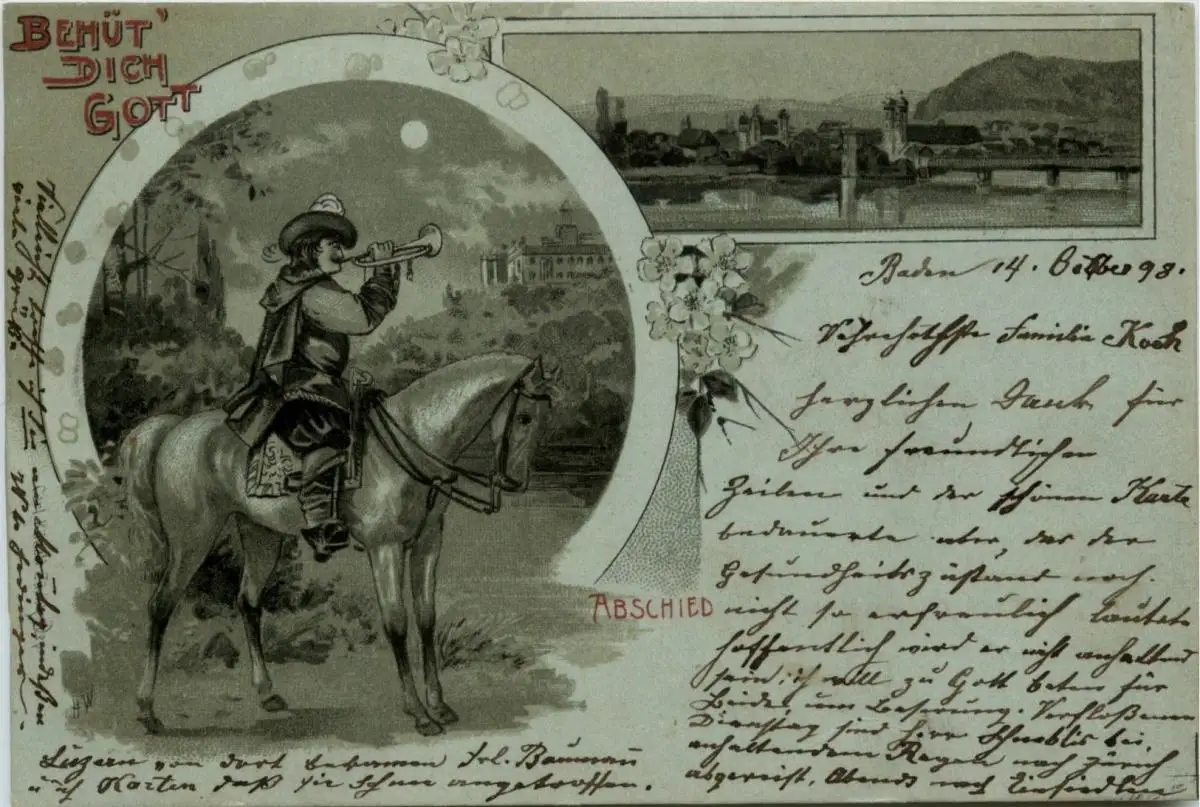 BEHÜT'
DICH
GOTT
ABSCHIED
HW
Baden 14. October 98.
Verehrthste Familie Koch
herzlichen Dank für
Ihre freundlichen
Zeilen und der schönen Karte
bedauerte aber, das der
Gesundheitszustand noch
nicht so erfreulich lautete
hoffentlich wird er nicht anhaltend
sein, ich will zu Gott beten für
Beide um Besserung. Verfloßenen
Dienstag sind Herr Schneblis bei
anhaltendem Regen nach Zürich
abgereist, Abends nach Einsiedeln
Luzern von dort bekamen Frl. Baumann
u. ich Karten daß sie schon angetroffen.
Vielleicht treffe ich Sie indeßen
viele Grüße